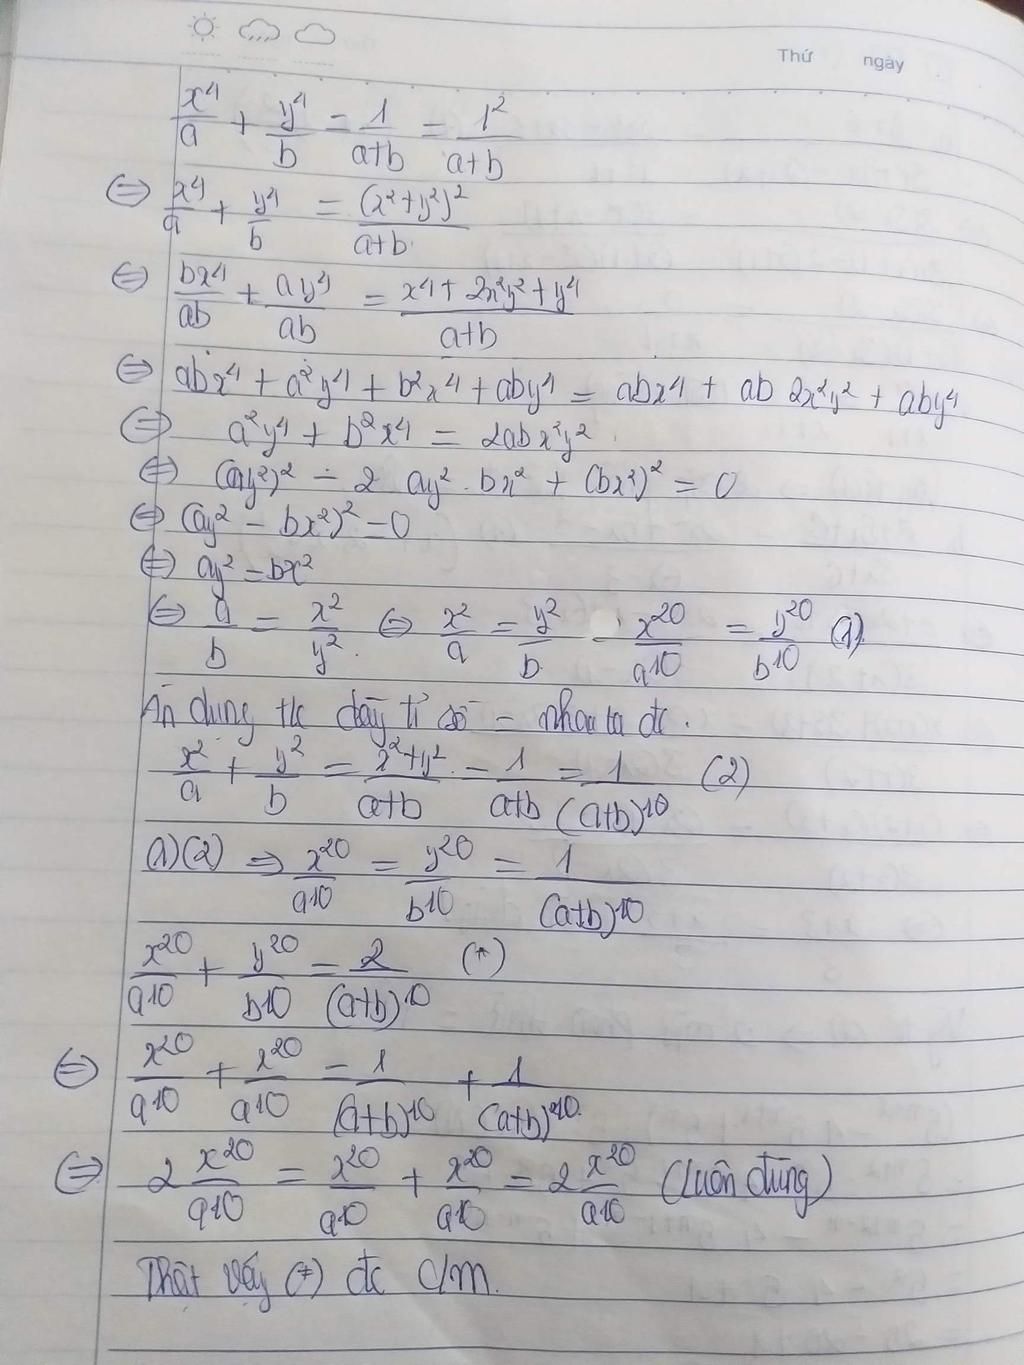 Thứ ngày
x⁴/a + y⁴/b = 1/(a+b) = 1²/(a+b)
⇔ x⁴/a + y⁴/b = (x²+y²)²/(a+b)
⇔ bx⁴/ab + ay⁴/ab = (x⁴ + 2x²y² + y⁴)/(a+b)
⇔ abx⁴ + a²y⁴ + b²x⁴ + aby⁴ = abx⁴ + ab 2x²y² + aby⁴
⇔ a²y⁴ + b²x⁴ = 2abx²y²
⇔ (ay²)² - 2 ay² . bx² + (bx²)² = 0
⇔ (ay² - bx²)² = 0
⇔ ay² = bx²
⇔ a/b = x²/y² ⇔ x²/a = y²/b = x²⁰/a¹⁰ = y²⁰/b¹⁰ (1)
Áp dụng t/c dãy tỉ số = nhau ta đc.
x²/a + y²/b = (x²+y²)/(a+b) = 1/(a+b) = 1/(a+b)¹⁰ (2)
(1)(2) ⇒ x²⁰/a¹⁰ = y²⁰/b¹⁰ = 1/(a+b)¹⁰
x²⁰/a¹⁰ + y²⁰/b¹⁰ = 2/(a+b)¹⁰ (*)
⇔ x²⁰/a¹⁰ + x²⁰/a¹⁰ = 1/(a+b)¹⁰ + 1/(a+b)¹⁰
⇔ 2 x²⁰/a¹⁰ = x²⁰/a¹⁰ + x²⁰/a¹⁰ = 2 x²⁰/a¹⁰ (luôn đúng)
Thật vậy (*) đc c/m.